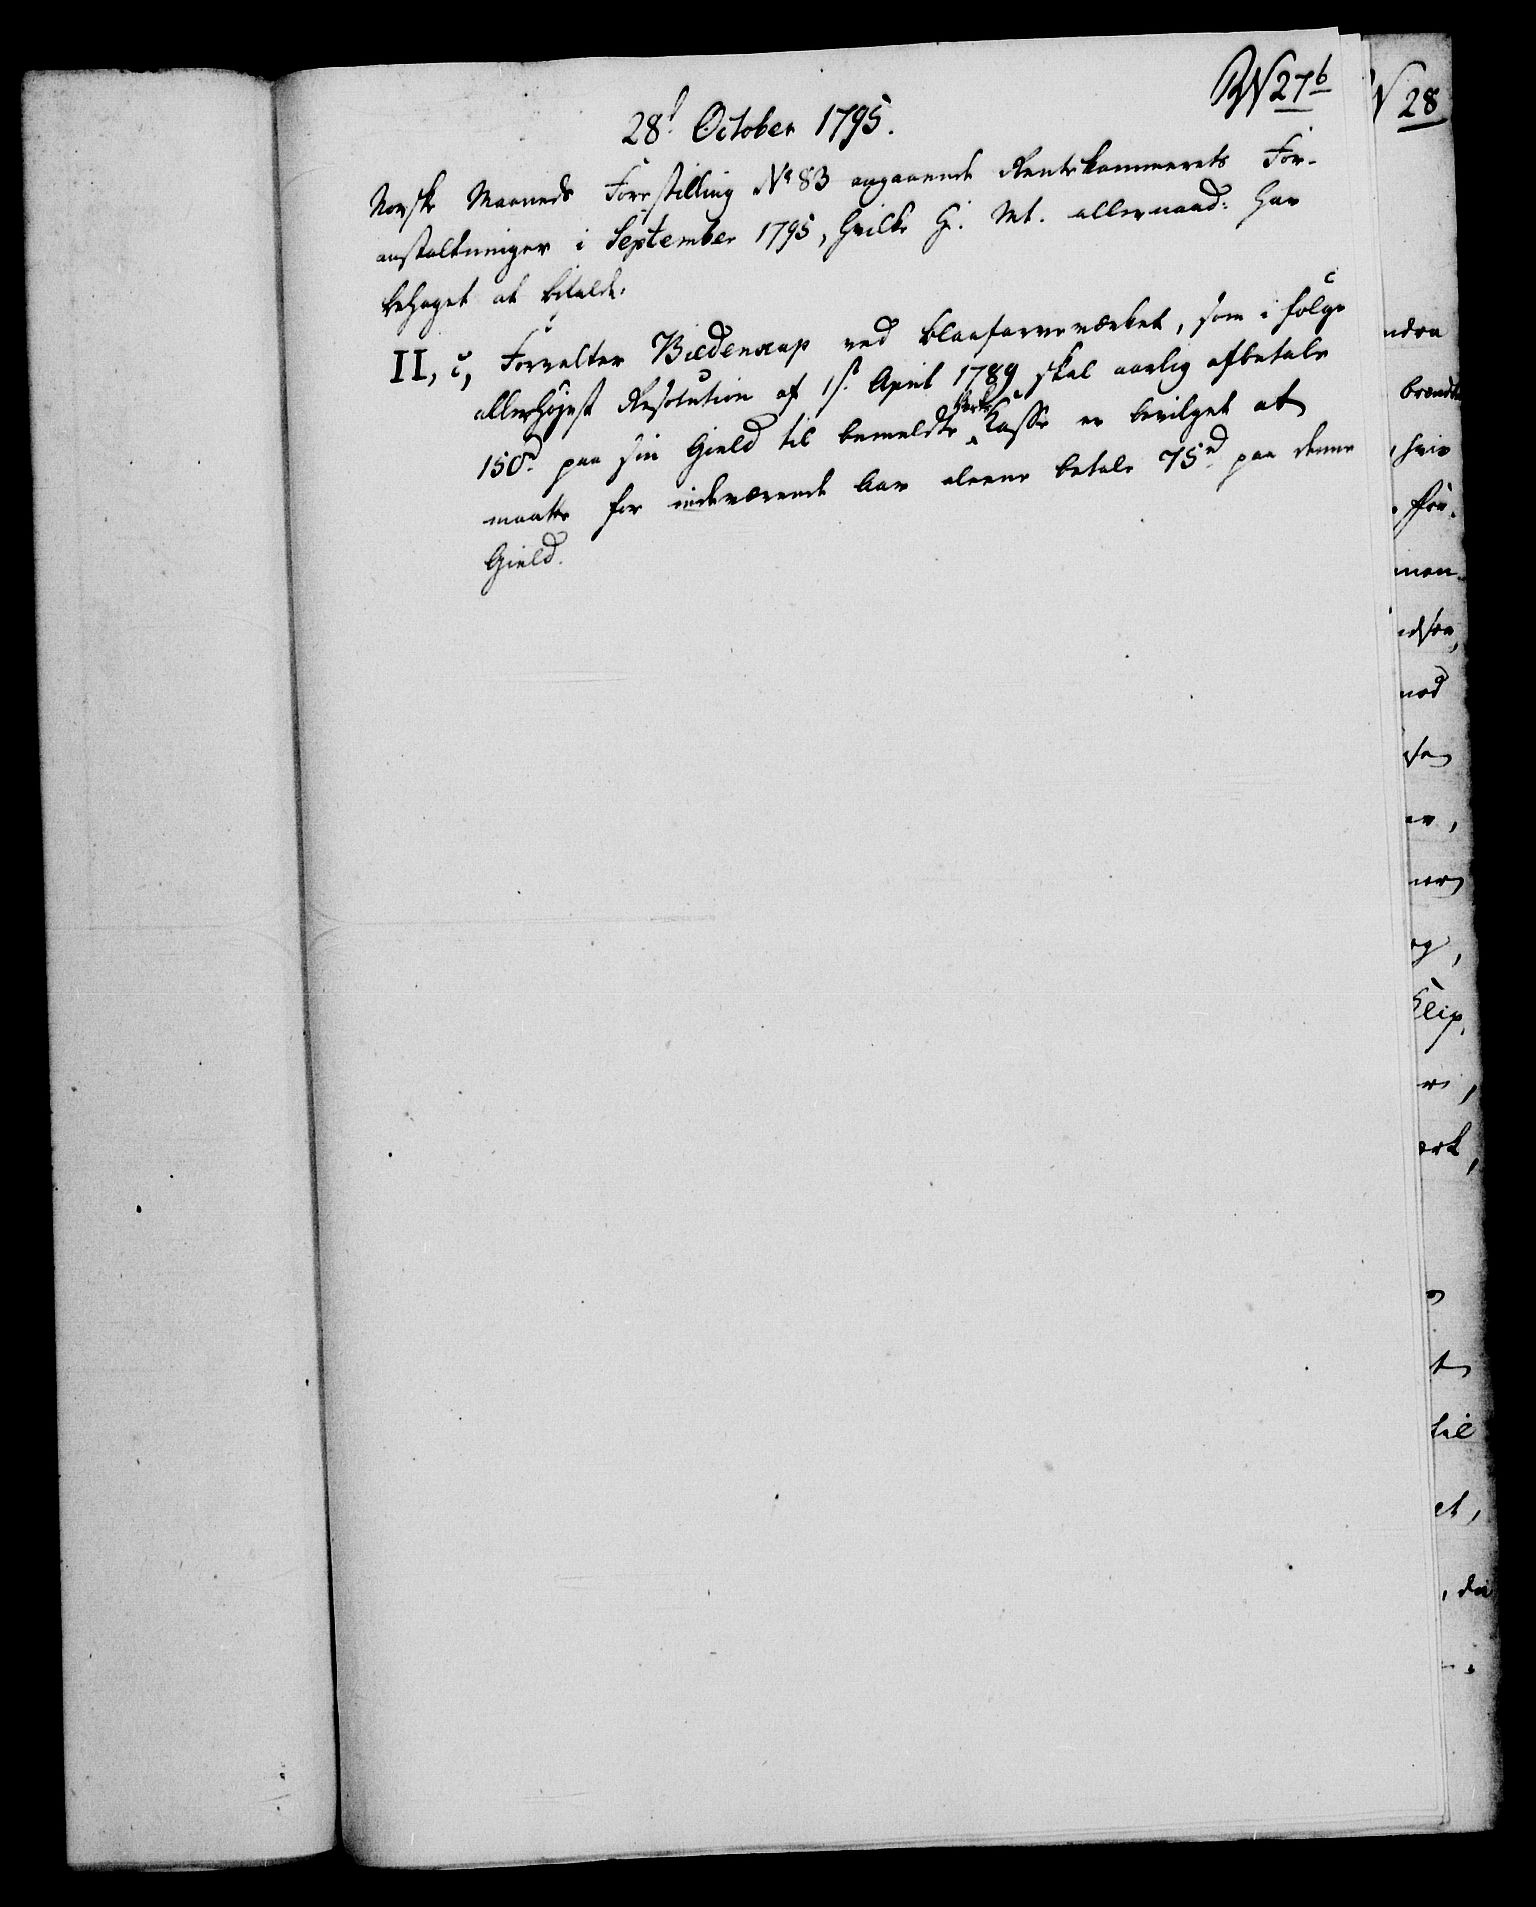 N 27b
28d October 1795.
Norske Maaneds Forestilling No 83 angaaende Rentekammerets For-
anstaltninger i September 1795, hvilke H. Mt. allernaad: har
behaget at bifalde.
II, c, Forvalter Bædenap ved Blaafarveværket, som i følge
allerhøjest Resolution af 1st. April 1789 skal aarlig afbetale
150rd paa sin Gield til bemeldte Værks Casse er bevilget at
maatte for indeværende Aar alene betale 75rd paa denne
Gield.
N 28